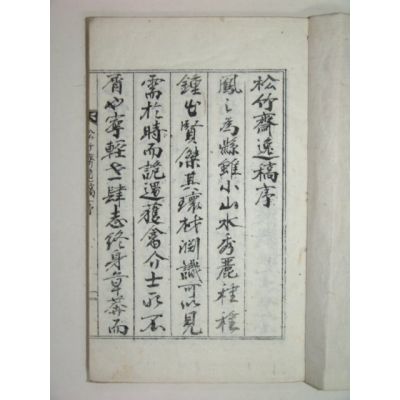 松竹齋逸稿序
鳳之為縣雖小山水秀麗種種
鍾出賢傑其瓌材淵識可以見
需於時而詭遇獲禽介士所不
屑也寧輕世肆志終身草莽而
松竹齋逸稿序